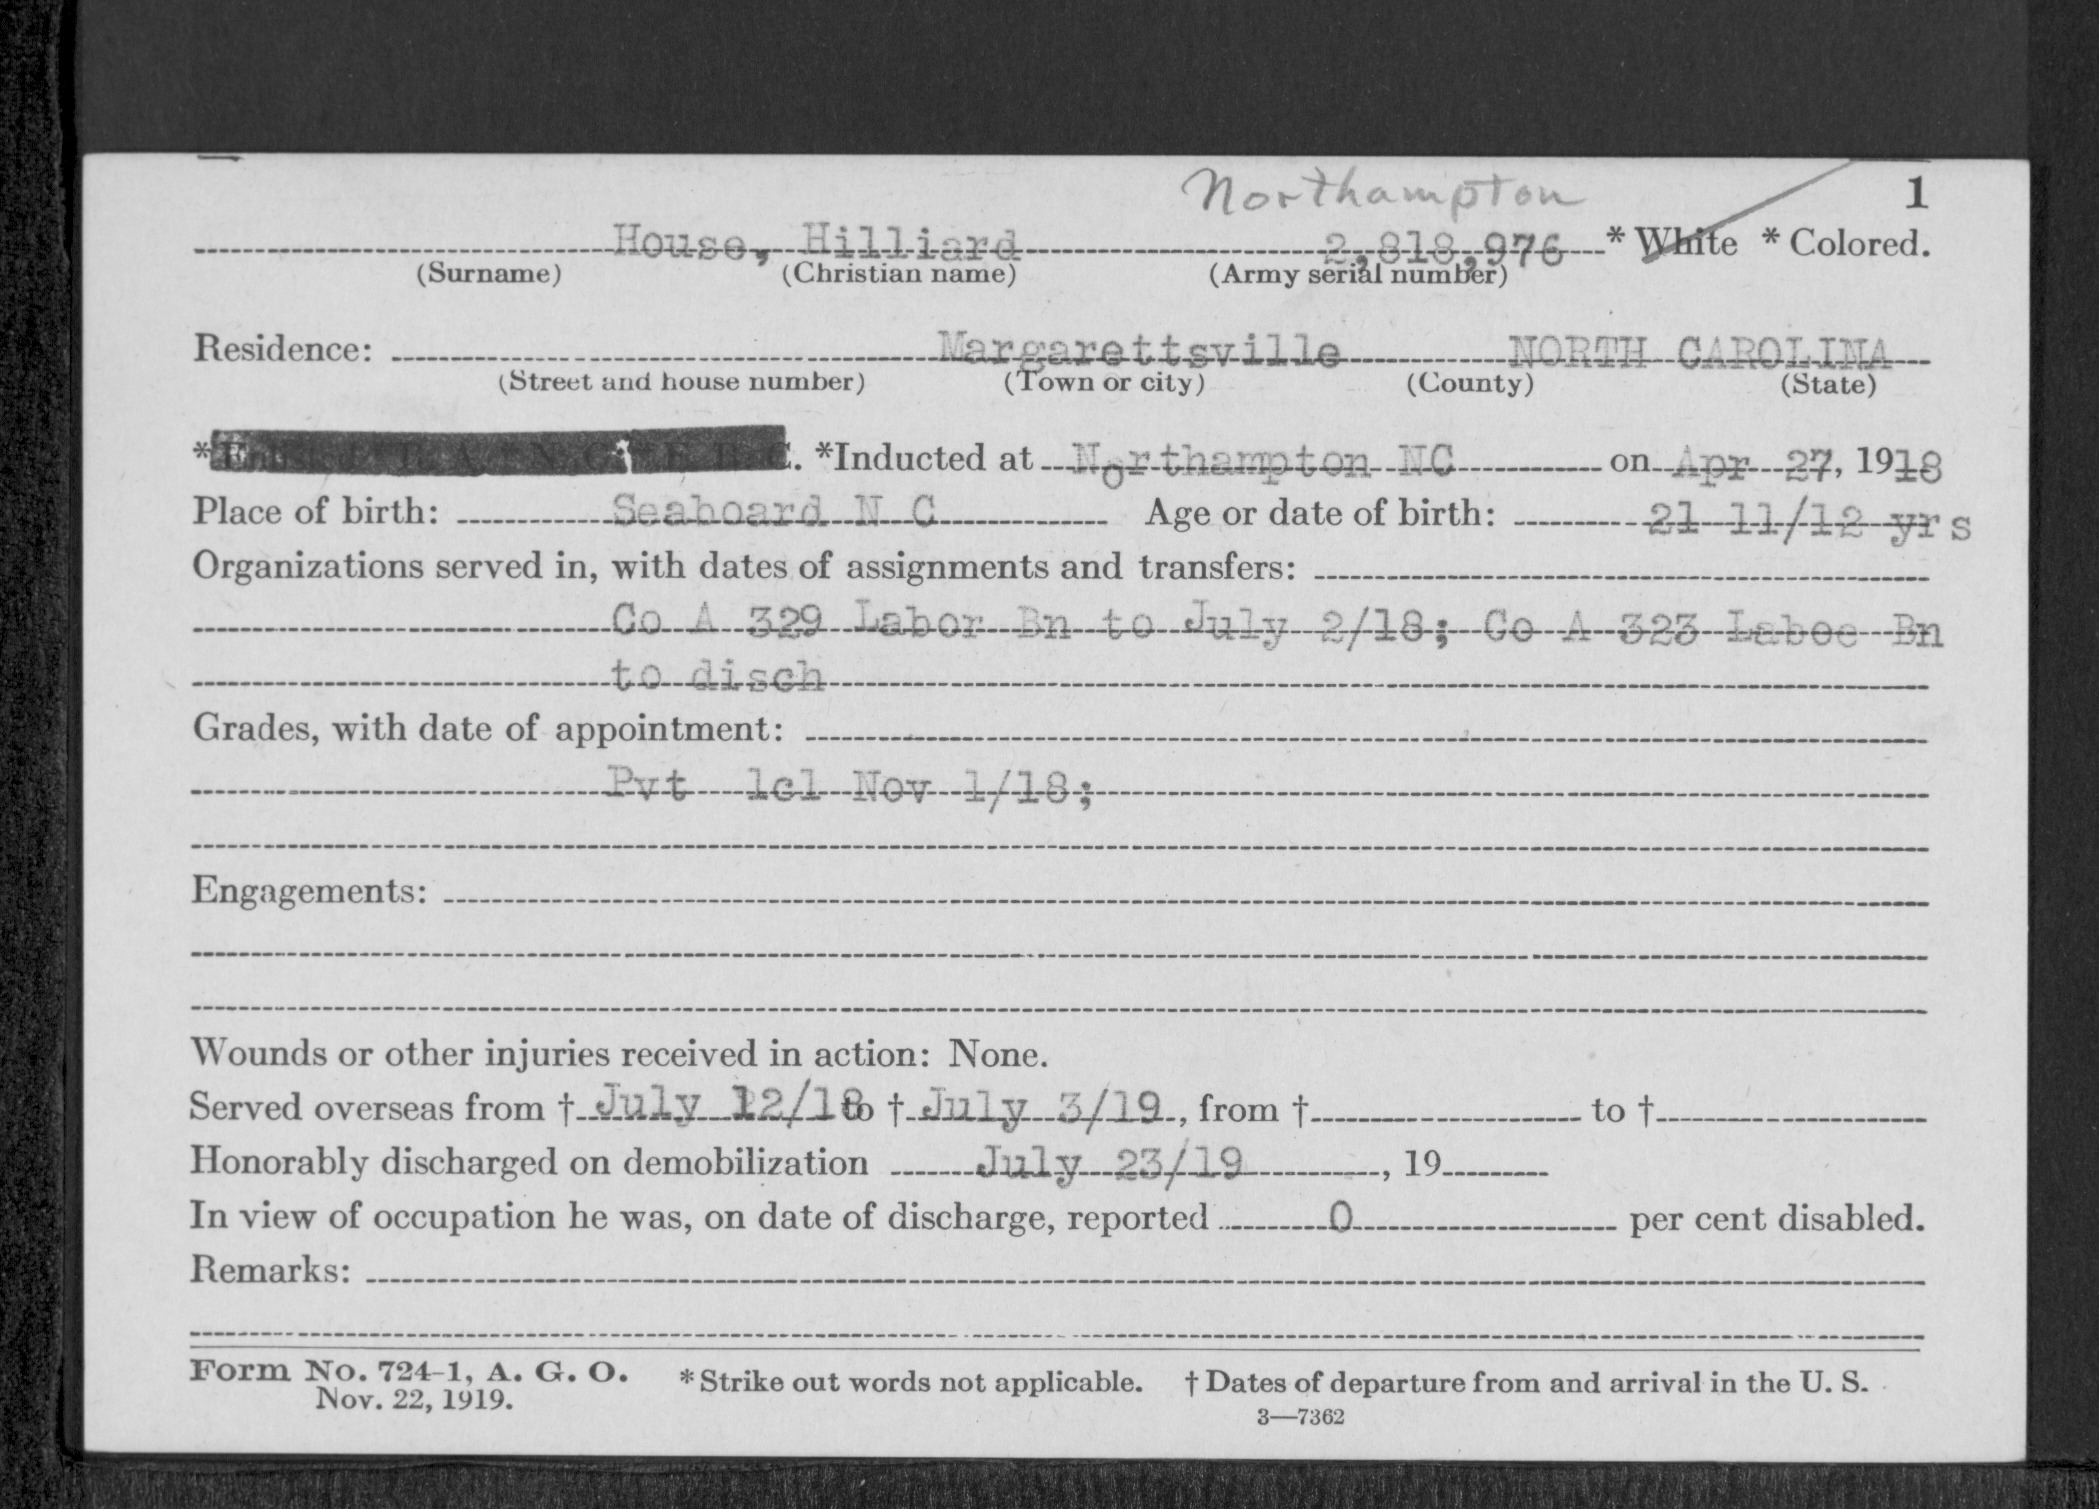 Northampton 1
House, Hilliard 2,818,976 * White * Colored.
(Surname) (Christian name) (Army serial number)
Residence: Margarettsville NORTH CAROLINA
(Street and house number) (Town or city) (County) (State)
* C. *Inducted at Northampton NC on Apr 27, 1918
Place of birth: Seaboard N C Age or date of birth: 21 11/12 yrs
Organizations served in, with dates of assignments and transfers:
Co A 329 Labor Bn to July 2/18; Co A 323 Laboe Bn
to disch
Grades, with date of appointment:
Pvt 1cl Nov 1/18;
Engagements:
Wounds or other injuries received in action: None.
Served overseas from † July 12/18 to † July 3/19, from † to †
Honorably discharged on demobilization July 23/19, 19
In view of occupation he was, on date of discharge, reported 0 per cent disabled.
Remarks:
Form No. 724-1, A. G. O. * Strike out words not applicable. † Dates of departure from and arrival in the U. S.
Nov. 22, 1919.
3—7362